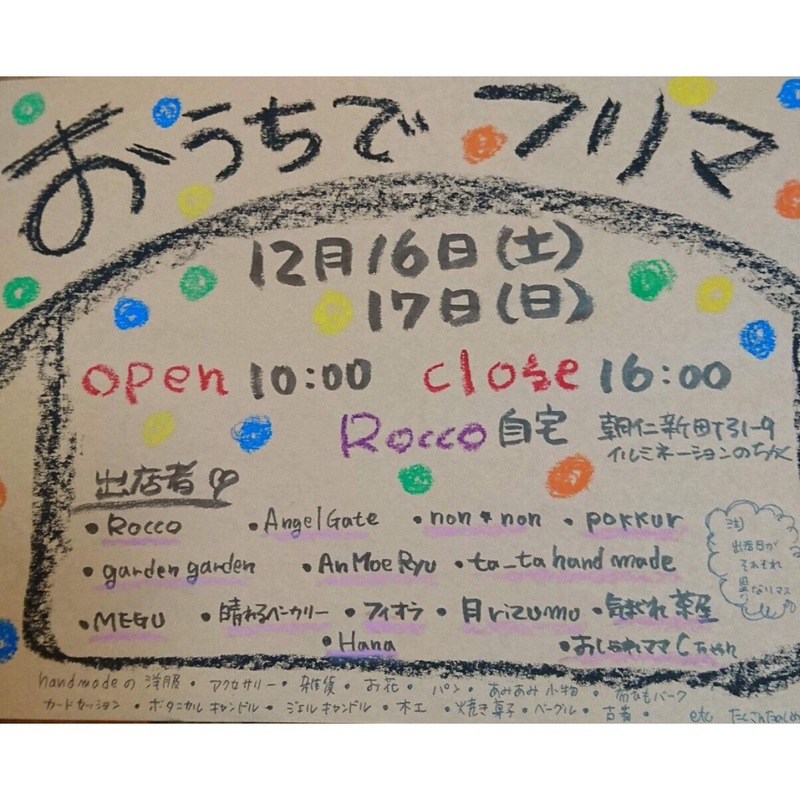 おうちで フリマ
12月16日(土)
17日(日)
open 10:00 close 16:00
Rocco 自宅 朝仁新町31-9
イルミネーションのちかく
出店者
・Rocco ・Angel Gate ・non*non ・pokkur
・garden garden ・An Moe Ryu ・ta_ta hand made
・MEGU ・晴れるベーカリー ・フィオラ ・月rizumu ・気まぐれ茶屋
・Hana ・おしゃれママCちゃん
注)
出店日が
それぞれ
異なりマス
handmadeの洋服・アクセサリー・雑貨・お花・パン・あみあみ小物・
カードセッション・ボタニカルキャンドル・ジェルキャンドル・木工・焼き菓子・ベーグル・古着・ etc